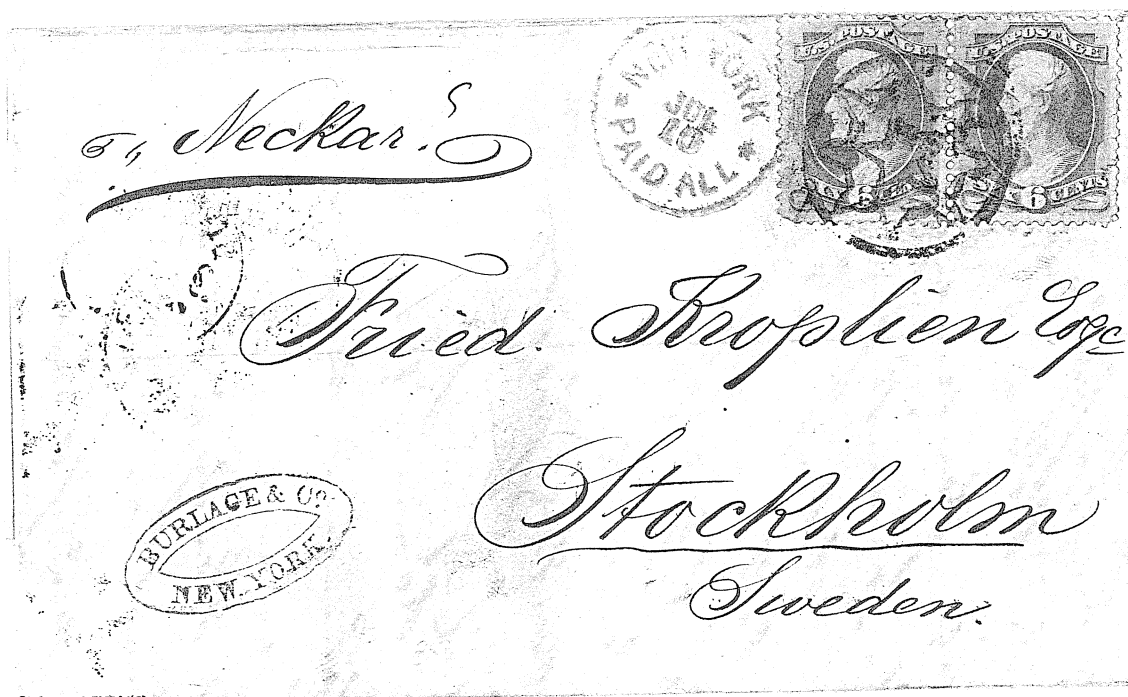 „Neckar“
NEW YORK
JUL
PAID ALL
U.S. POSTAGE
U.S. POSTAGE
6 CENTS
Fried. Kroplien Esqe
Stockholm
Sweden.
BURLAGE & Co.
NEW. YORK.